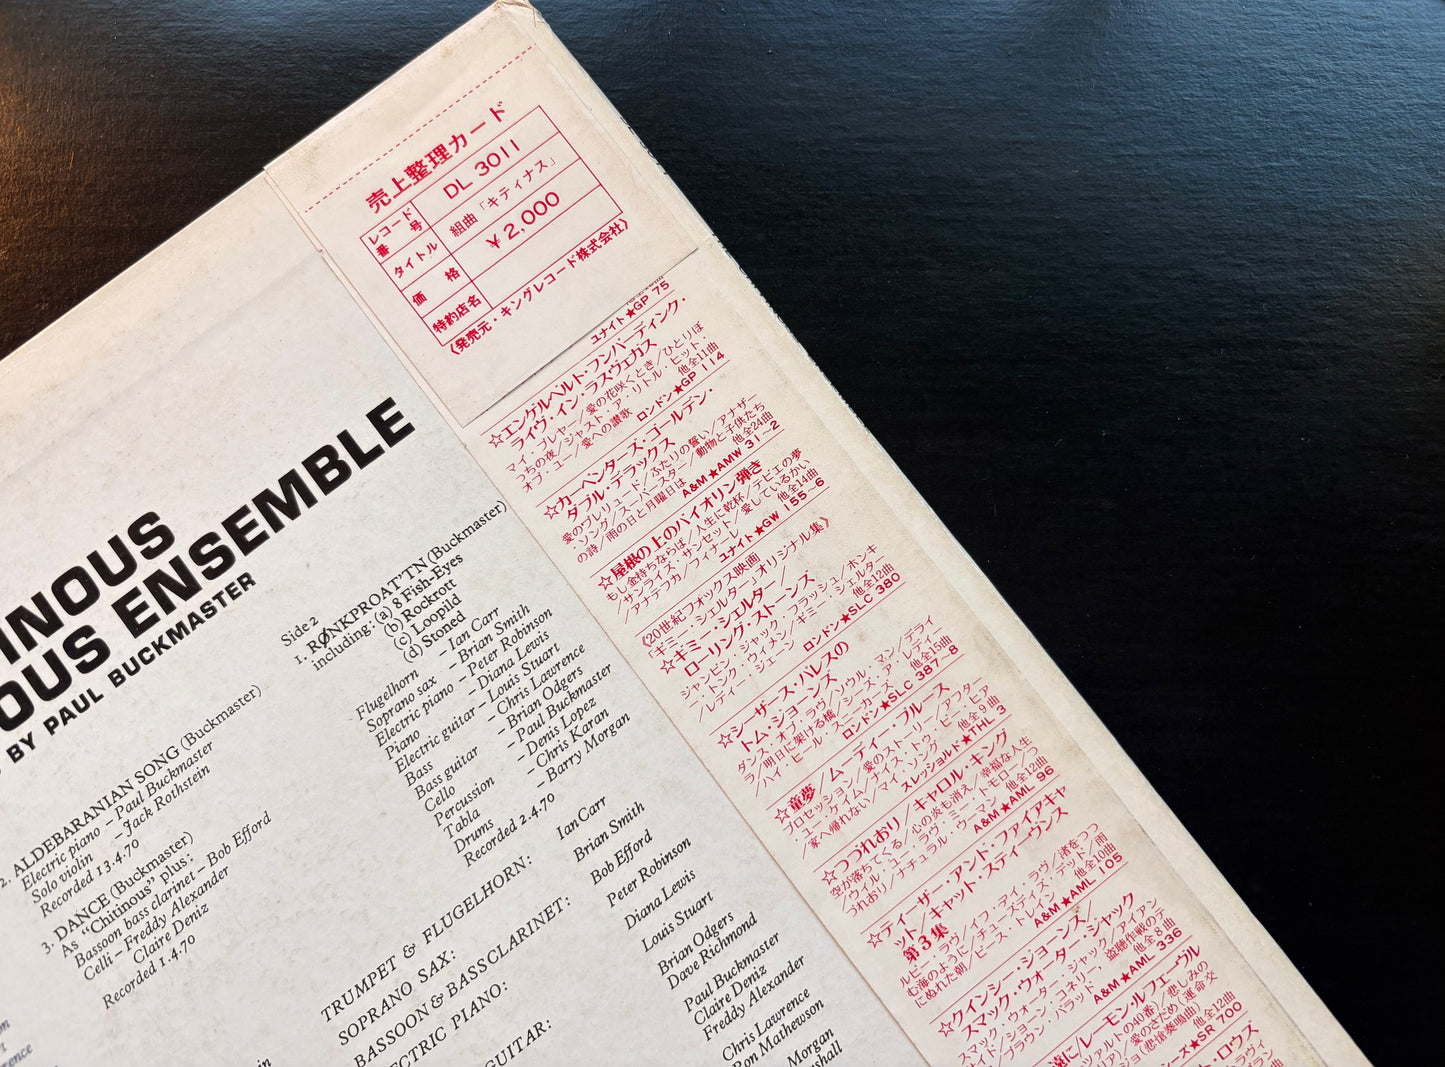 売上整理カード
レコード番号 DL 3011
タイトル 組曲「キティナス」
価格 ¥2,000
特約店名
《発売元・キングレコード株式会社》
ユナイト★GP 75
☆エンゲルベルト・フンパーディンク・
ライヴ・イン・ラスヴェガス
マイ・プレヤー/愛の花咲くとき/ひとりぼ
っちの夜/ジャスト・ア・リトル・ビット・
オブ・ユー/愛への讃歌 他全11曲
ロンドン★GP 114
☆カーペンターズ・ゴールデン・
ダブル・デラックス
愛のプレリュード/ふたりの誓い/アナザー
・ソング/スーパースター/動物と子供たち
の詩/雨の日と月曜日は 他全24曲
A&M★AMW 31-2
☆屋根の上のバイオリン弾き
もし金持ちならば/人生に乾杯/テビエの夢
/サンライズ・サンセット/愛しているかい
/アナテフカ/フィナーレ 他全14曲
ユナイト★GW 155-6
《20世紀フォックス映画
「ギミー・シェルター」オリジナル集》
☆ギミー・シェルター/
ローリング・ストーンズ
ジャンピン・ジャック・フラッシュ/ホンキ
ー・トンク・ウィメン/ギミー・シェルター
/レディー・ジェーン 他全12曲
ロンドン★SLC 380
☆シーザース・パレスの
トム・ジョーンズ
ダンス・オブ・ラヴ/ソウル・マン/デライ
ラ/明日に架ける橋/シーズ・ア・レディー
/ハイ・ヒール・スニーカーズ 他全15曲
ロンドン★SLC 387-8
☆童夢/ムーディー・ブルース
プロセッション/愛のストーリー/アフター
・ユー・ケイム/ナイス・トゥ・ビー・ヒア
/家へ帰れない/マイ・ソング 他全9曲
スレッショルド★THL 3
☆つづれおり/キャロル・キング
空が落ちてくる/心の炎も消え/幸福な人生
/ウィル・ユー・ラヴ・ミー・トモロー/つ
づれおり/ナチュラル・ウーマン 他全12曲
A&M★AML 96
☆ティーザー・アンド・ファイアキャ
ット/キャット・スティーヴンス
第3集
ルビー・ラヴ/イフ・アイ・ラヴ/渚をつつ
む海のように/チューズデイズ・デッド/雨
にぬれた朝/ピース・トレイン 他全10曲
A&M★AML 105
☆クインシー・ジョーンズ/
スマック・ウォーター・ジャック
スマック・ウォーター・ジャック/アイアン
サイド/ショーン・コネリー、盗聴作戦のテ
ーマ/ブラウン・バラッド 他全8曲
A&M★AML 336
/レーモン・ルフェーヴル
の40番)/悲しみの
/愛のさだめ(運命交
(悲愴奏鳴曲) 他全12曲
★SR 700
INOUS
OUS ENSEMBLE
BY PAUL BUCKMASTER
2. ALDEBARANIAN SONG (Buckmaster)
Electric piano – Paul Buckmaster
Solo violin – Jack Rothstein
Recorded 13.4.70
3. DANCE (Buckmaster)
As "Chitinous" plus:
Bassoon bass clarinet – Bob Efford
Celli – Freddy Alexander
Claire Deniz
Recorded 1.4.70
Side 2
1. RØNKPROAT'TN (Buckmaster)
including: (a) 8 Fish-Eyes
(b) Rockrott
(c) Loopild
(d) Stoned
Flugelhorn – Ian Carr
Soprano sax – Brian Smith
Electric piano – Peter Robinson
Piano – Diana Lewis
Electric guitar – Louis Stuart
Bass – Chris Lawrence
Bass guitar – Brian Odgers
Cello – Paul Buckmaster
Percussion – Denis Lopez
Tabla – Chris Karan
Drums – Barry Morgan
Recorded 2.4.70
TRUMPET & FLUGELHORN: Ian Carr
SOPRANO SAX: Brian Smith
BASSOON & BASSCLARINET: Bob Efford
ECTRIC PIANO: Peter Robinson
Diana Lewis
GUITAR: Louis Stuart
Brian Odgers
Dave Richmond
Paul Buckmaster
Claire Deniz
Freddy Alexander
Chris Lawrence
Ron Mathewson
Morgan
shall